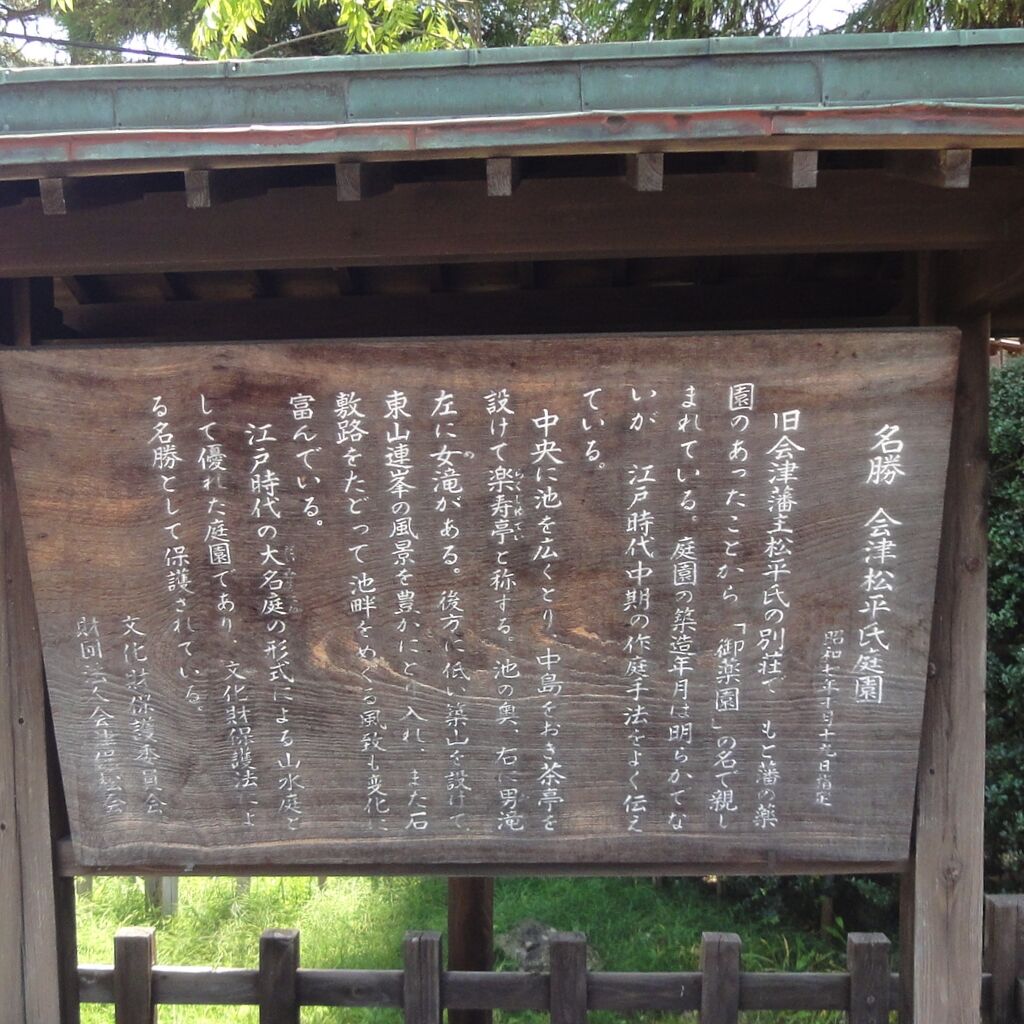 名勝 会津松平氏庭園
昭和七年十月十九日指定
旧会津藩主松平氏の別荘で もと藩の薬
園のあったことから 「御薬園」の名で親し
まれている。庭園の築造年月は明らかでな
いが 江戸時代中期の作庭手法をよく伝え
ている。
中央に池を広くとり、中島をおき茶亭を
設けて楽寿亭と称する。池の奥、右に男滝
左に女滝がある。後方に低い築山を設けて、
東山連峯の風景を豊かにとり入れ、また石
敷路をたどって池畔をめぐる風致も変化に
富んでいる。
江戸時代の大名庭の形式による山水庭と
して優れた庭園であり、文化財保護法によ
る名勝として保護されている。
文化財保護委員会
財団法人会津保松会